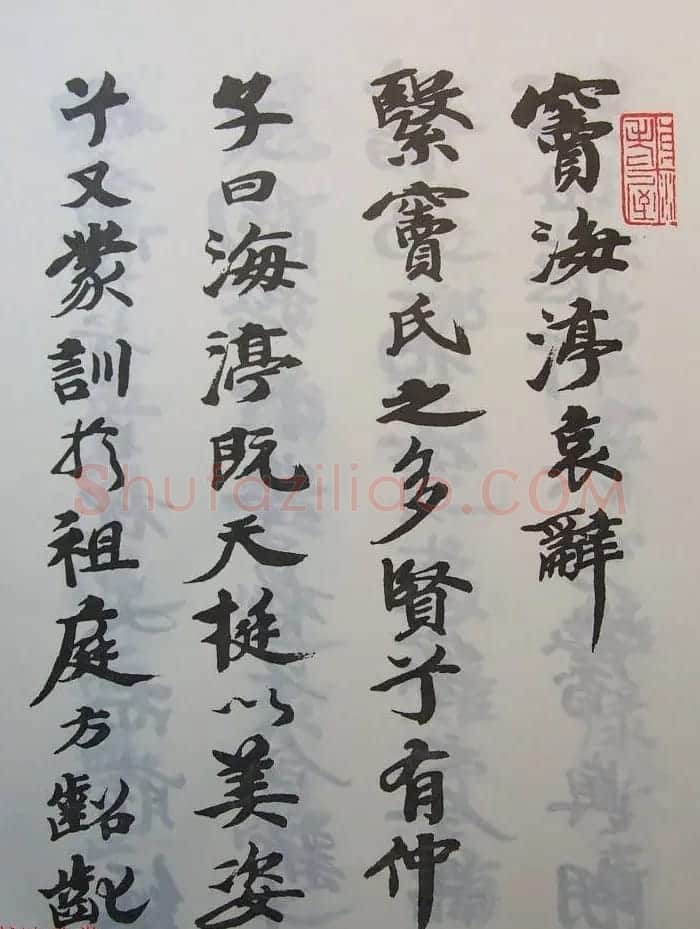 竇海渟哀辭
繄竇氏之多賢兮有仲
子曰海渟既天挺以美姿
兮又蒙訓於祖庭方齠齔
Shufaziliao.COM